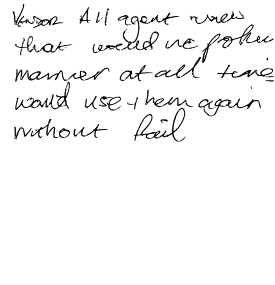 Vendor All agent
that would
manner at all time
would use them again
without fail